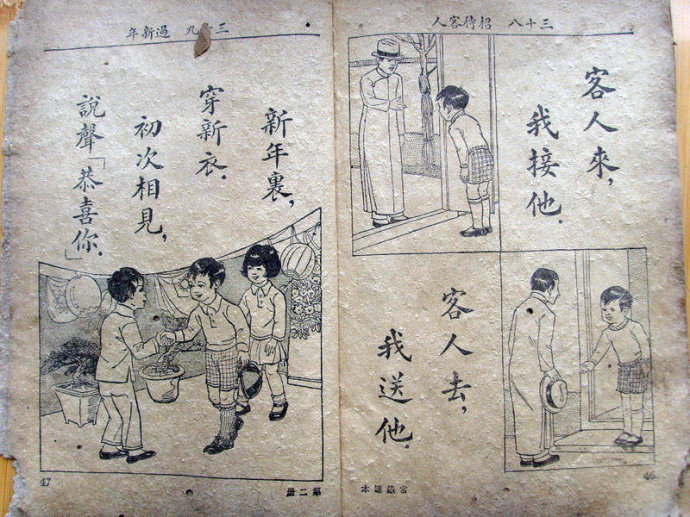 三十八 招待客人
客人來，
我接他．
客人去，
我送他．
46
常識課本
三十九 過新年
新年裏，
穿新衣．
初次相見，
說聲「恭喜你．」
第二册
47